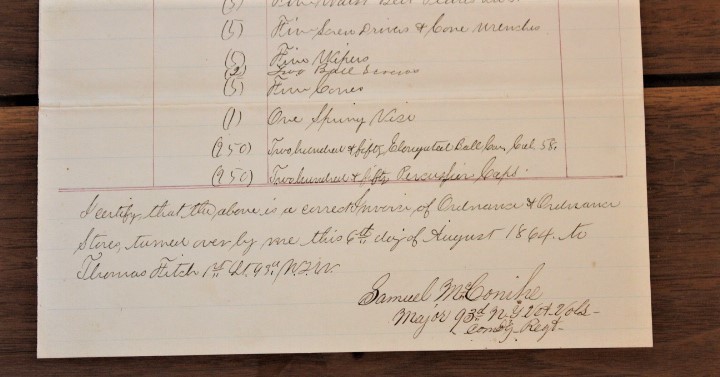 (5) Five Waist Belt Plates
(5) Five Screw Drivers & Cone Wrenches
(5) Five Wipers
(2) Two Ball Screws
(5) Five Cones
(1) One Spring Vise
(250) Two hundred & fifty Elongated Ball Cal. 58.
(250) Two hundred & fifty Percussion Caps.
I certify that the above is a correct Invoice of Ordnance & Ordnance
Stores, turned over by me this 6th day of August 1864. to
Thomas Fitch 1st Lt. 93rd
Samuel McConihe
Major 93rd N.Y. Vet Vols-
Comdg Regt-